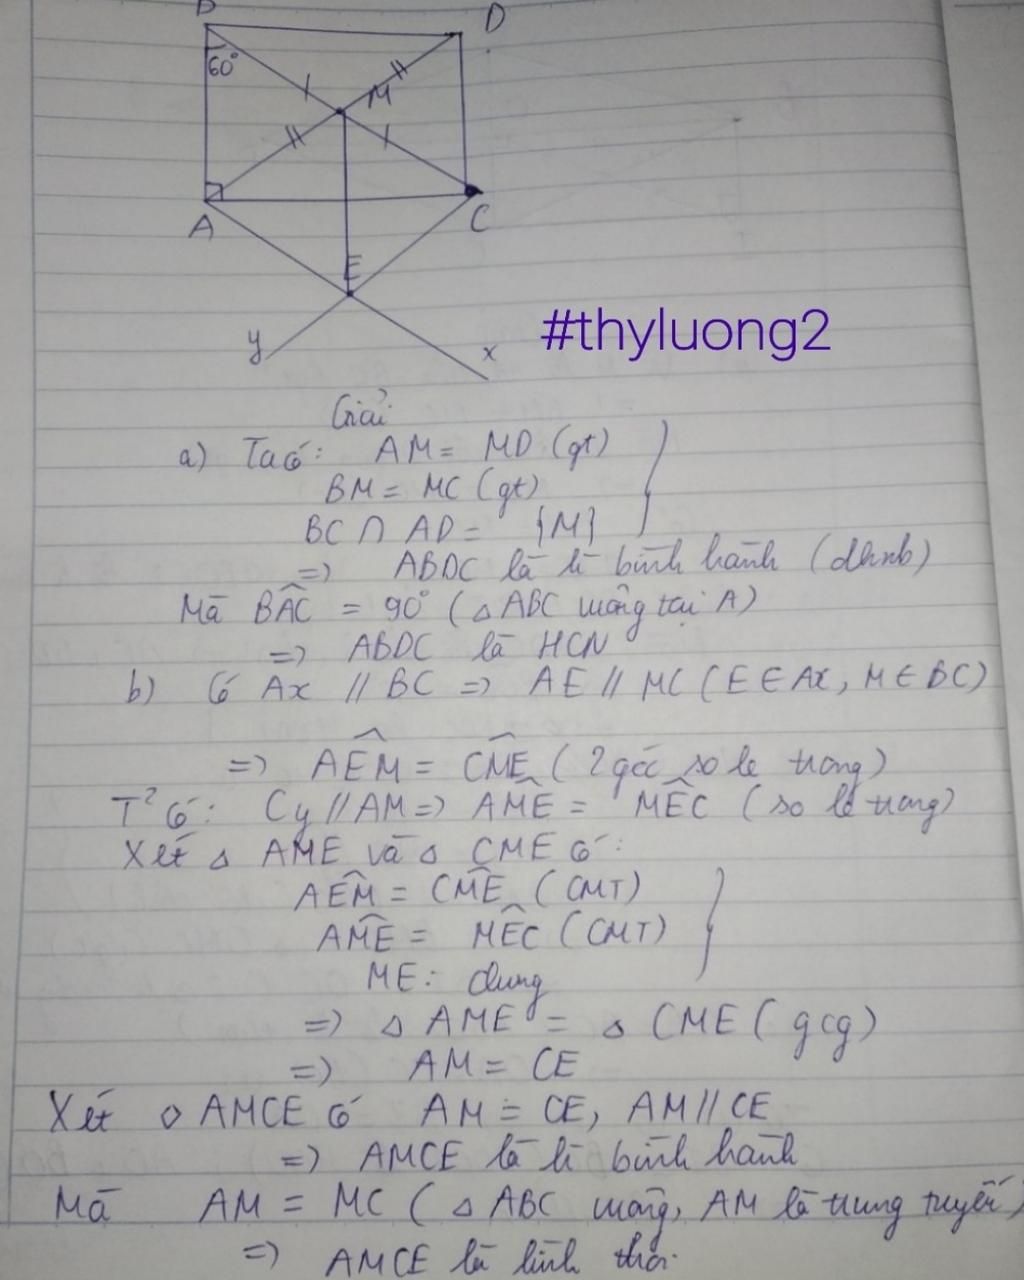 B
D
60°
M
A
C
E
y
x
#thyluong2
Giải
a) Ta có: AM = MD (gt)
BM = MC (gt)
BC ∩ AD = {M}
=> ABDC là h bình hành (dhnb)
Mà BAC = 90° (△ABC vuông tại A)
=> ABDC là HCN
b) Có Ax // BC => AE // MC (E ∈ Ax, M ∈ BC)
=> AEM = CME (2 góc so le trong)
T² có: Cy // AM => AME = MEC (so le trong)
Xét △ AME và △ CME có:
AEM = CME (CMT)
AME = MEC (CMT)
ME: chung
=> △ AME = △ CME (gcg)
=> AM = CE
Xét ◇ AMCE có AM = CE, AM // CE
=> AMCE là h bình hành
Mà AM = MC (△ ABC vuông, AM là trung tuyến)
=> AMCE là hình thoi.